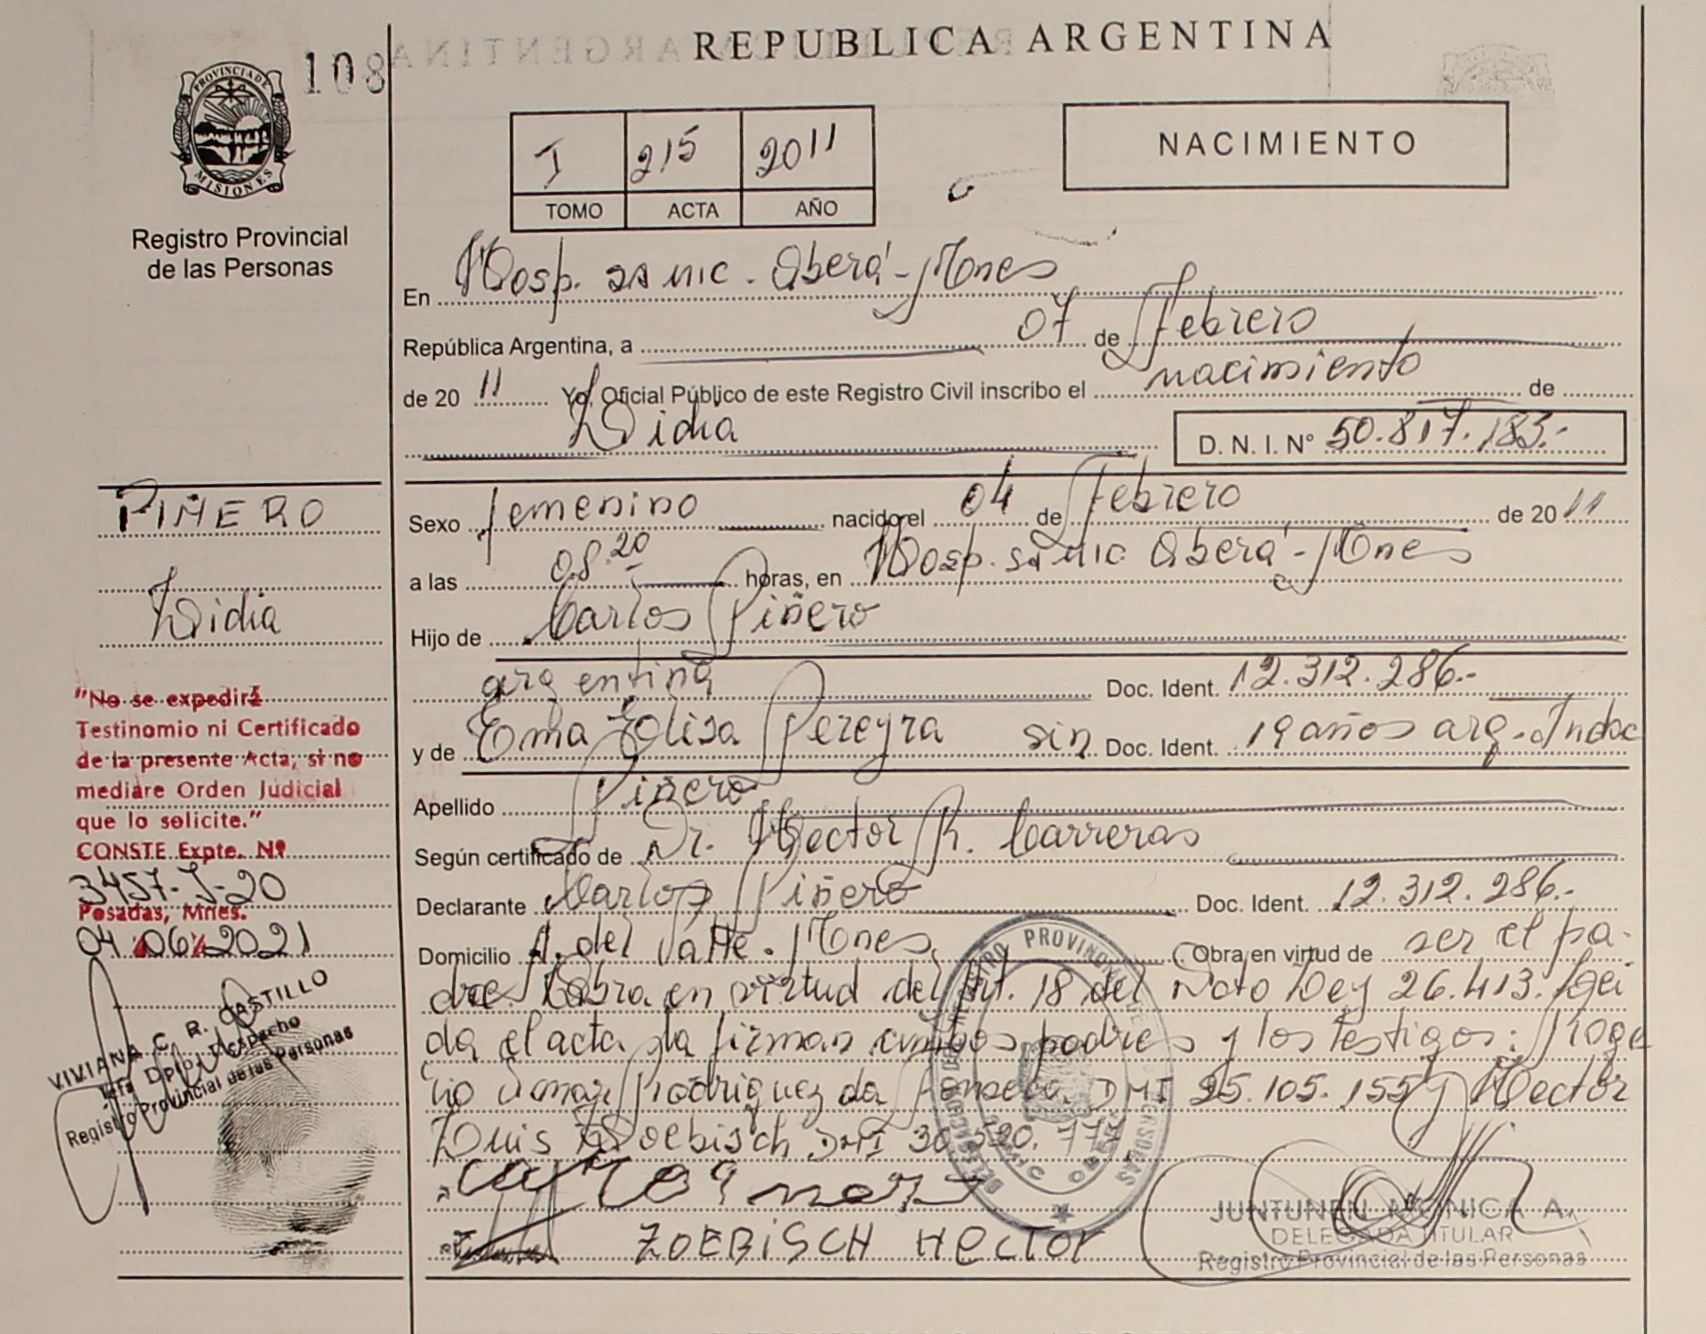 REPUBLICA ARGENTINA
108
PROVINCIA DE
MISIONES
Registro Provincial
de las Personas
I 215 2011
TOMO ACTA AÑO
NACIMIENTO
En Hosp. samic. Oberá - Mnes
República Argentina, a 07 de Febrero
de 20 11 Yo, Oficial Público de este Registro Civil inscribo el nacimiento de
Lidia
D. N. I. Nº 50.817.183.-
PIÑERO
Lidia
Sexo femenino nacido el 04 de Febrero de 20 11
a las 08.20 horas, en Hosp. samic Oberá - Mnes
Hijo de Carlos Piñero
argentina Doc. Ident. 12.312.286.-
y de Ema Elisa Pereyra sin Doc. Ident. 19 años arg. Indoc
Apellido Piñero
Según certificado de Dr. Hector R. Carreras
Declarante Carlos Piñero Doc. Ident. 12.312.286.-
Domicilio A. del Valle - Mnes. Obra en virtud de ser el pa-
dre. Labra en virtud del Art. 18 del Dcto Ley 26.413. Leí
da el acta la firman ambos padres y los testigos: Roge
lio Rodriguez da Fonseca DNI 25.105.155 y Hector
Luis Zoebisch DNI 30.520.777
ZOEBISCH HECTOR
"No se expedirá
Testinomio ni Certificado
de la presente Acta, si no
mediare Orden Judicial
que lo solicite."
CONSTE Expte. Nº
3457-J-20
Posadas, Mnes.
04 / 06 / 2021
VIVIANA C. R. CASTILLO
Jefa Dpto. Despacho
Registro Provincial de las Personas
JUNTUNEN MONICA A.
DELEGADA TITULAR
Registro Provincial de las Personas